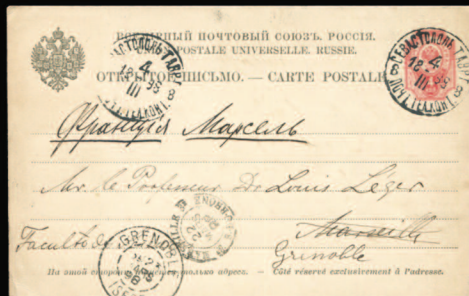 ВСЕМІРНЫЙ ПОЧТОВЫЙ СОЮЗЪ. РОССІЯ.
POSTALE UNIVERSELLE. RUSSIE.
ОТКРЫТОЕ ПИСЬМО. — CARTE POSTALE
СЕВАСТОПОЛЬ ТАВР
4
III
СЕВАСТОПОЛЬ ТАВР
4
III
Франція Марсель
Mr. le Professeur Dr Louis Léger
Faculté de
Marseille
Grenoble
GRENOBLE
На этой сторонѣ только адресъ. — Côté réservé exclusivement à l'adresse.